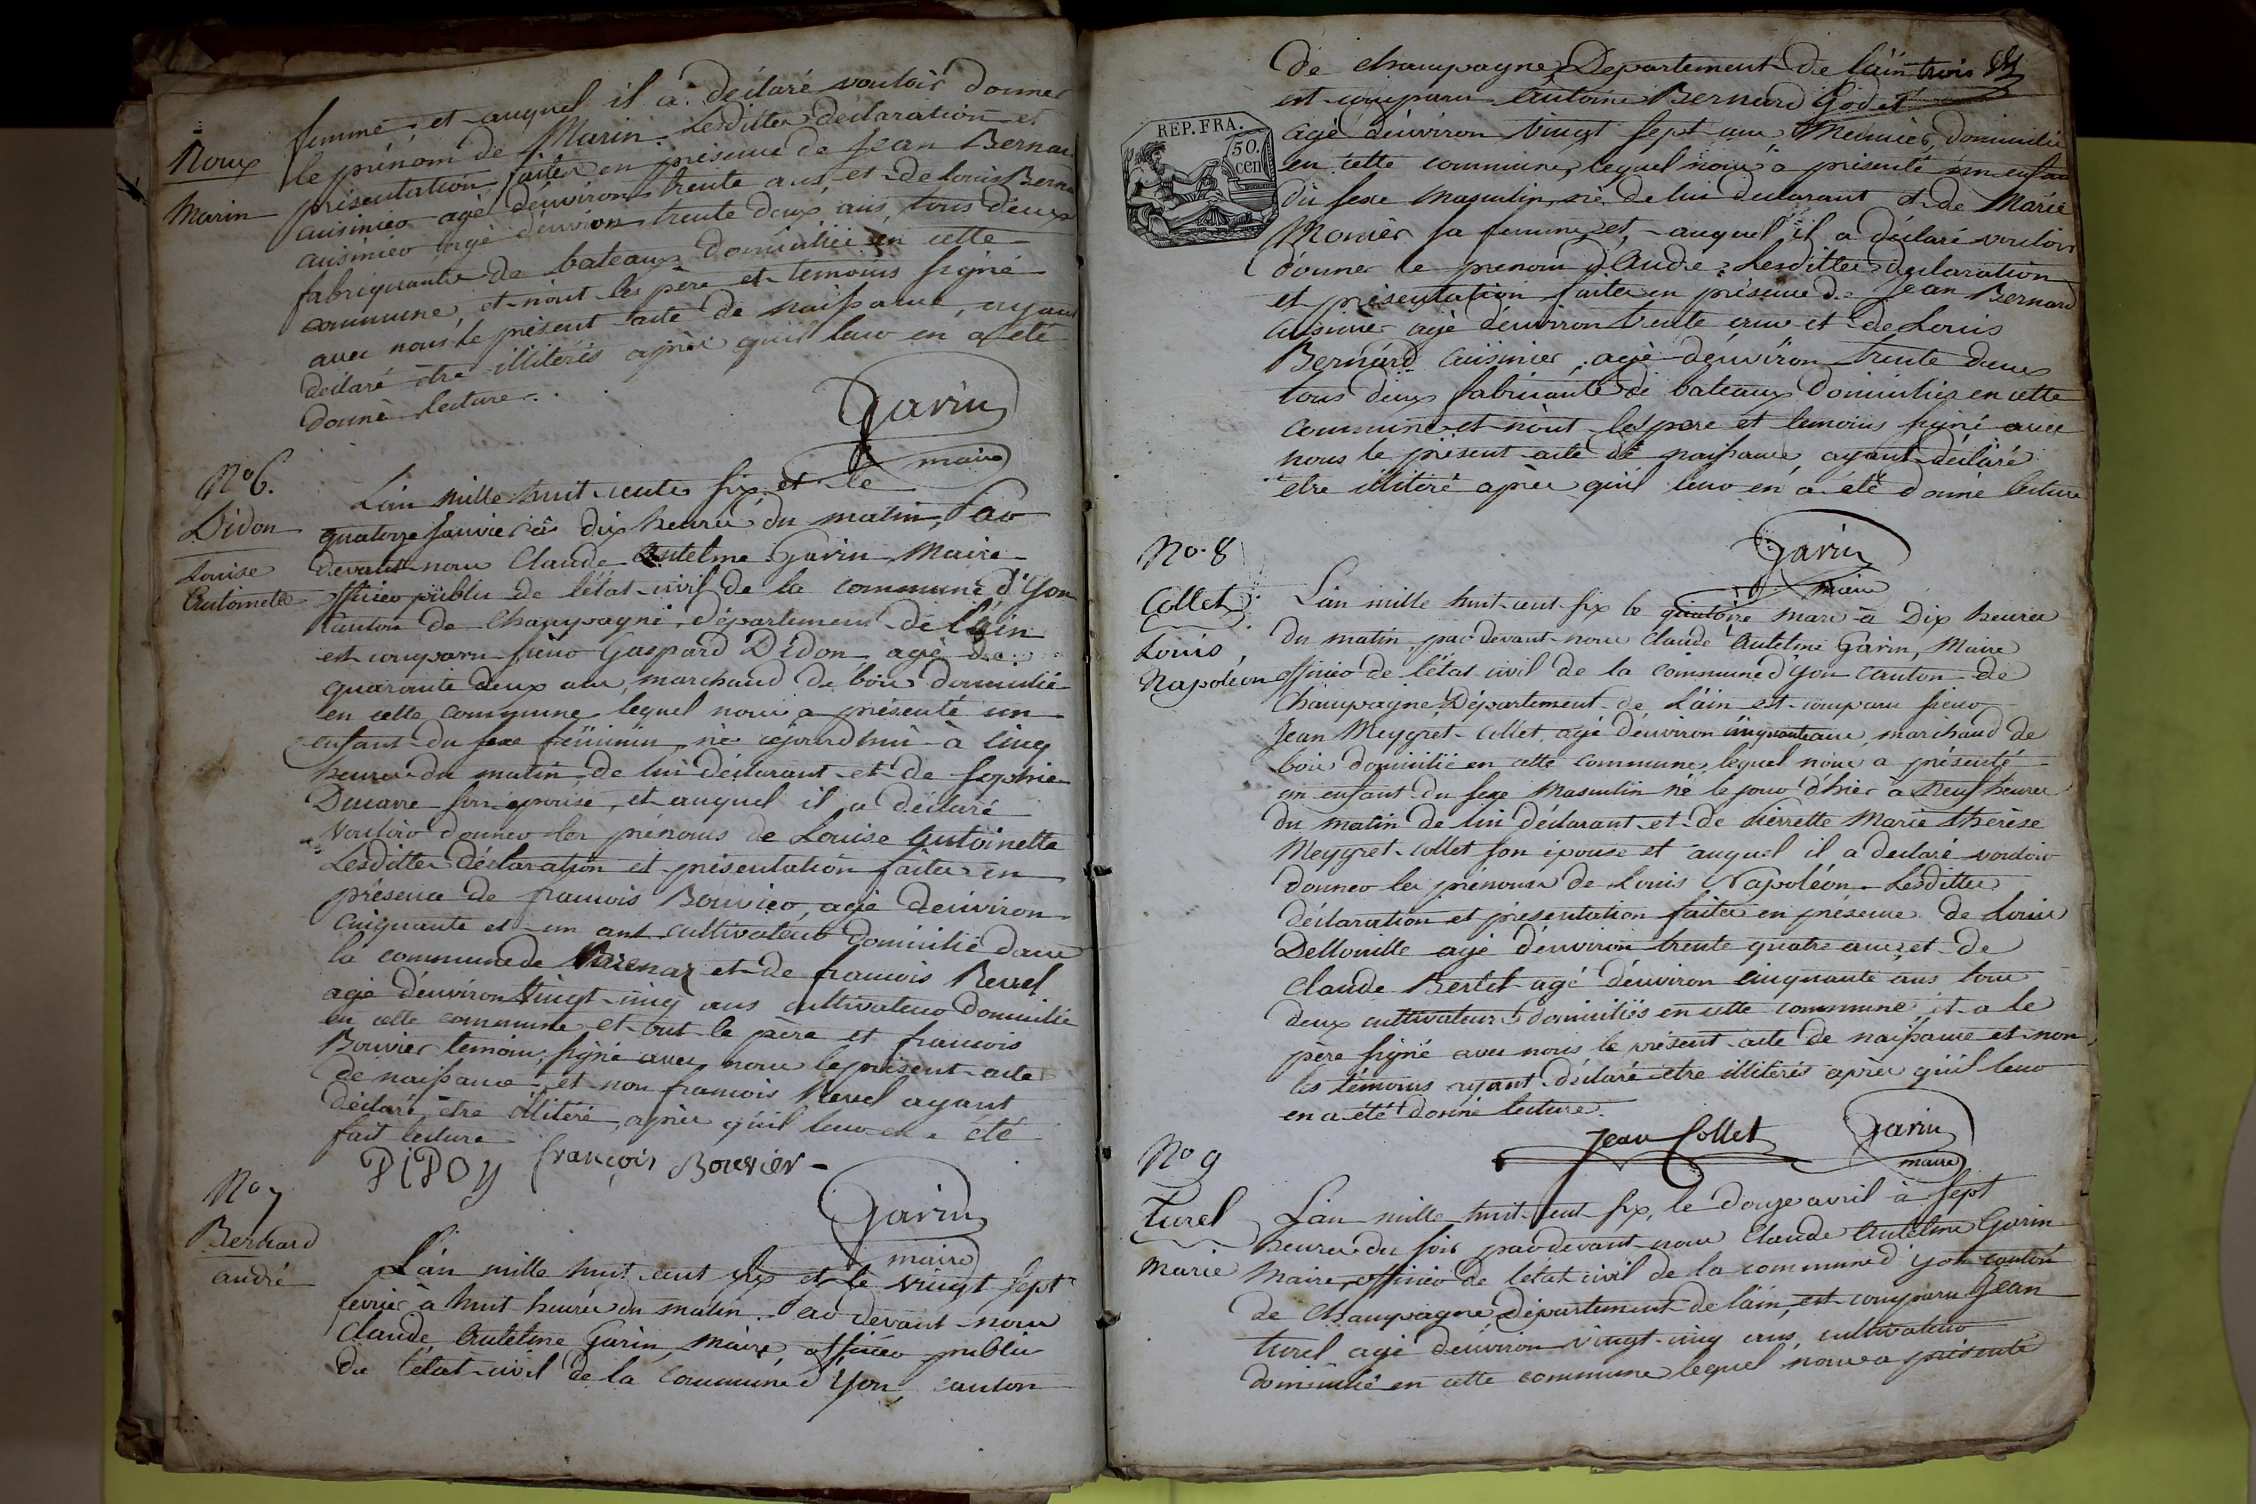 femme, et auquel il a déclaré vouloir donner
Roux
le prénom de Marin. Lesdittes déclaration et
Marin
présentation faites en présence de Jean Bernard
cuisinier agé d'environ trente ans, et de Louis Bernard
cuisinier agé d'environ trente deux ans, tous deux
fabriquants de bateaux domiciliés en cette
commune, et n'ont les père et temoins signé
avec nous le présent acte de naissance, ayant
déclaré être illitérés après qu'il leur en a été
donné lecture.
Garin
maire
No 6.
Didon
Louise
Antoinette
L'an mille huit cents six et le
quatorze Janvier à dix heures du matin, Par
devant nous Claude Antelme Garin Maire
officier public de l'état civil de la commune d'Yon
canton de Champagne, département de l'ain
est comparu sieur Gaspard Didon, agé de
quarante deux ans, marchand de bois domicilié
en cette commune lequel nous a présenté un
enfant du sexe féminin, né cejourd'hui à cinq
heures du matin, de lui déclarant et de Sophie
Ducarre son épouse, et auquel il a déclaré
vouloir donner les prénoms de Louise Antoinette
Lesdittes déclaration et présentation faites en
présence de françois Bouvier, agé d'environ
cinquante et un ans cultivateur domicilié dans
la commune de et de françois Revel
agé d'environ vingt-cinq ans cultivateur domicilié
en cette commune et ont le père et françois
Bouvier temoin, signé avec nous le présent acte
de naissance, et non françois Revel ayant
déclaré être illitéré, après qu'il leur en a été
fait lecture
DIDON françois Bouvier
Garin
maire
No 7
Bernard
andré
L'an mille huit cent six et le vingt sept
fevrier à huit heures du matin. Par devant nous
Claude Antelme Garin, Maire officier public
de l'état civil de la commune d'Yon, canton
de champagne, Departement de l'ain trois
est comparu Antoine Bernard Godet
REP. FRA.
50.
cen
agé d'environ vingt sept ans Meunier, domicilié
en cette commune, lequel nous a présenté un enfant
du sexe masculin, né de lui declarant et de Marie
Monier sa femme, et auquel il a déclaré vouloir
donner le prenom d'André. Lesdittes declaration
et présentation faites en présence de Jean Bernard
cuisinier agé d'environ trente ans et de Louis
Bernard cuisinier, agé d'environ trente deux
tous deux fabricants de bateaux domiciliés en cette
commune et n'ont les père et temoins signé avec
nous le présent acte de naissance, ayant déclaré
etre illitéré après qu'il leur en a été donné lecture
Garin
maire
No. 8
Collet
Louis
Napoléon
L'an mille huit cent six le quatorze mars à Dix heures
du matin, par devant nous Claude Antelme Garin, Maire
officier de l'état civil de la commune d'Yon canton de
Champagne Département de L'ain est comparu sieur
Jean Meygret-Collet, agé d'environ cinquante ans, marchand de
bois domicilié en cette commune, lequel nous a présenté
un enfant du sexe Masculin né le jour d'hier à neuf heures
du matin de lui déclarant et de Pierrette Marie thérèse
Meygret-Collet son épouse et auquel il a declaré vouloir
donner les prénoms de Louis Napoléon. Lesdittes
déclaration et présentation faites en présence de Louis
Dellouille agé d'environ trente quatre ans, et de
Claude Bertet agé d'environ cinquante ans tous
deux cultivateurs domiciliés en cette commune, et a le
père signé avec nous le présent acte de naissance et non
les témoins ayant déclaré etre illitérés après qu'il leur
en a été donné lecture.
Jean Collet
Garin
maire
No 9
Turel
Marie
L'an mille huit cent six, le douze avril à sept
heures du soir par devant nous Claude Antelme Garin
Maire, officier de l'état civil de la commune d'yon canton
de Champagne Département de l'ain, est comparu Jean
turel agé d'environ vingt-cinq ans, cultivateur
domicilié en cette commune lequel nous a présenté